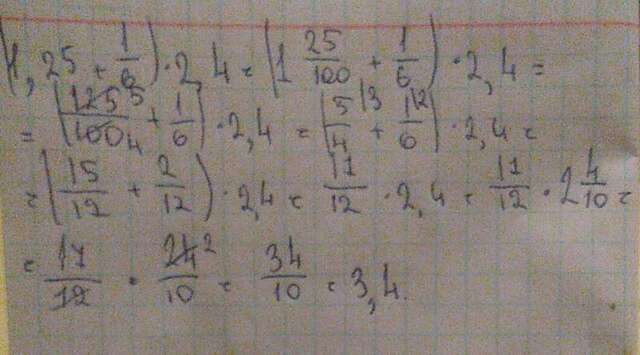 (1,25 + 1/6) · 2,4 = (1 25/100 + 1/6) · 2,4 =
= (125 5/100 4 + 1/6) · 2,4 = (5/4 |3 + 1/6 |2) · 2,4 =
= (15/12 + 2/12) · 2,4 = 17/12 · 2,4 = 17/12 · 2 4/10 =
= 17/12 · 24 2/10 = 34/10 = 3,4.